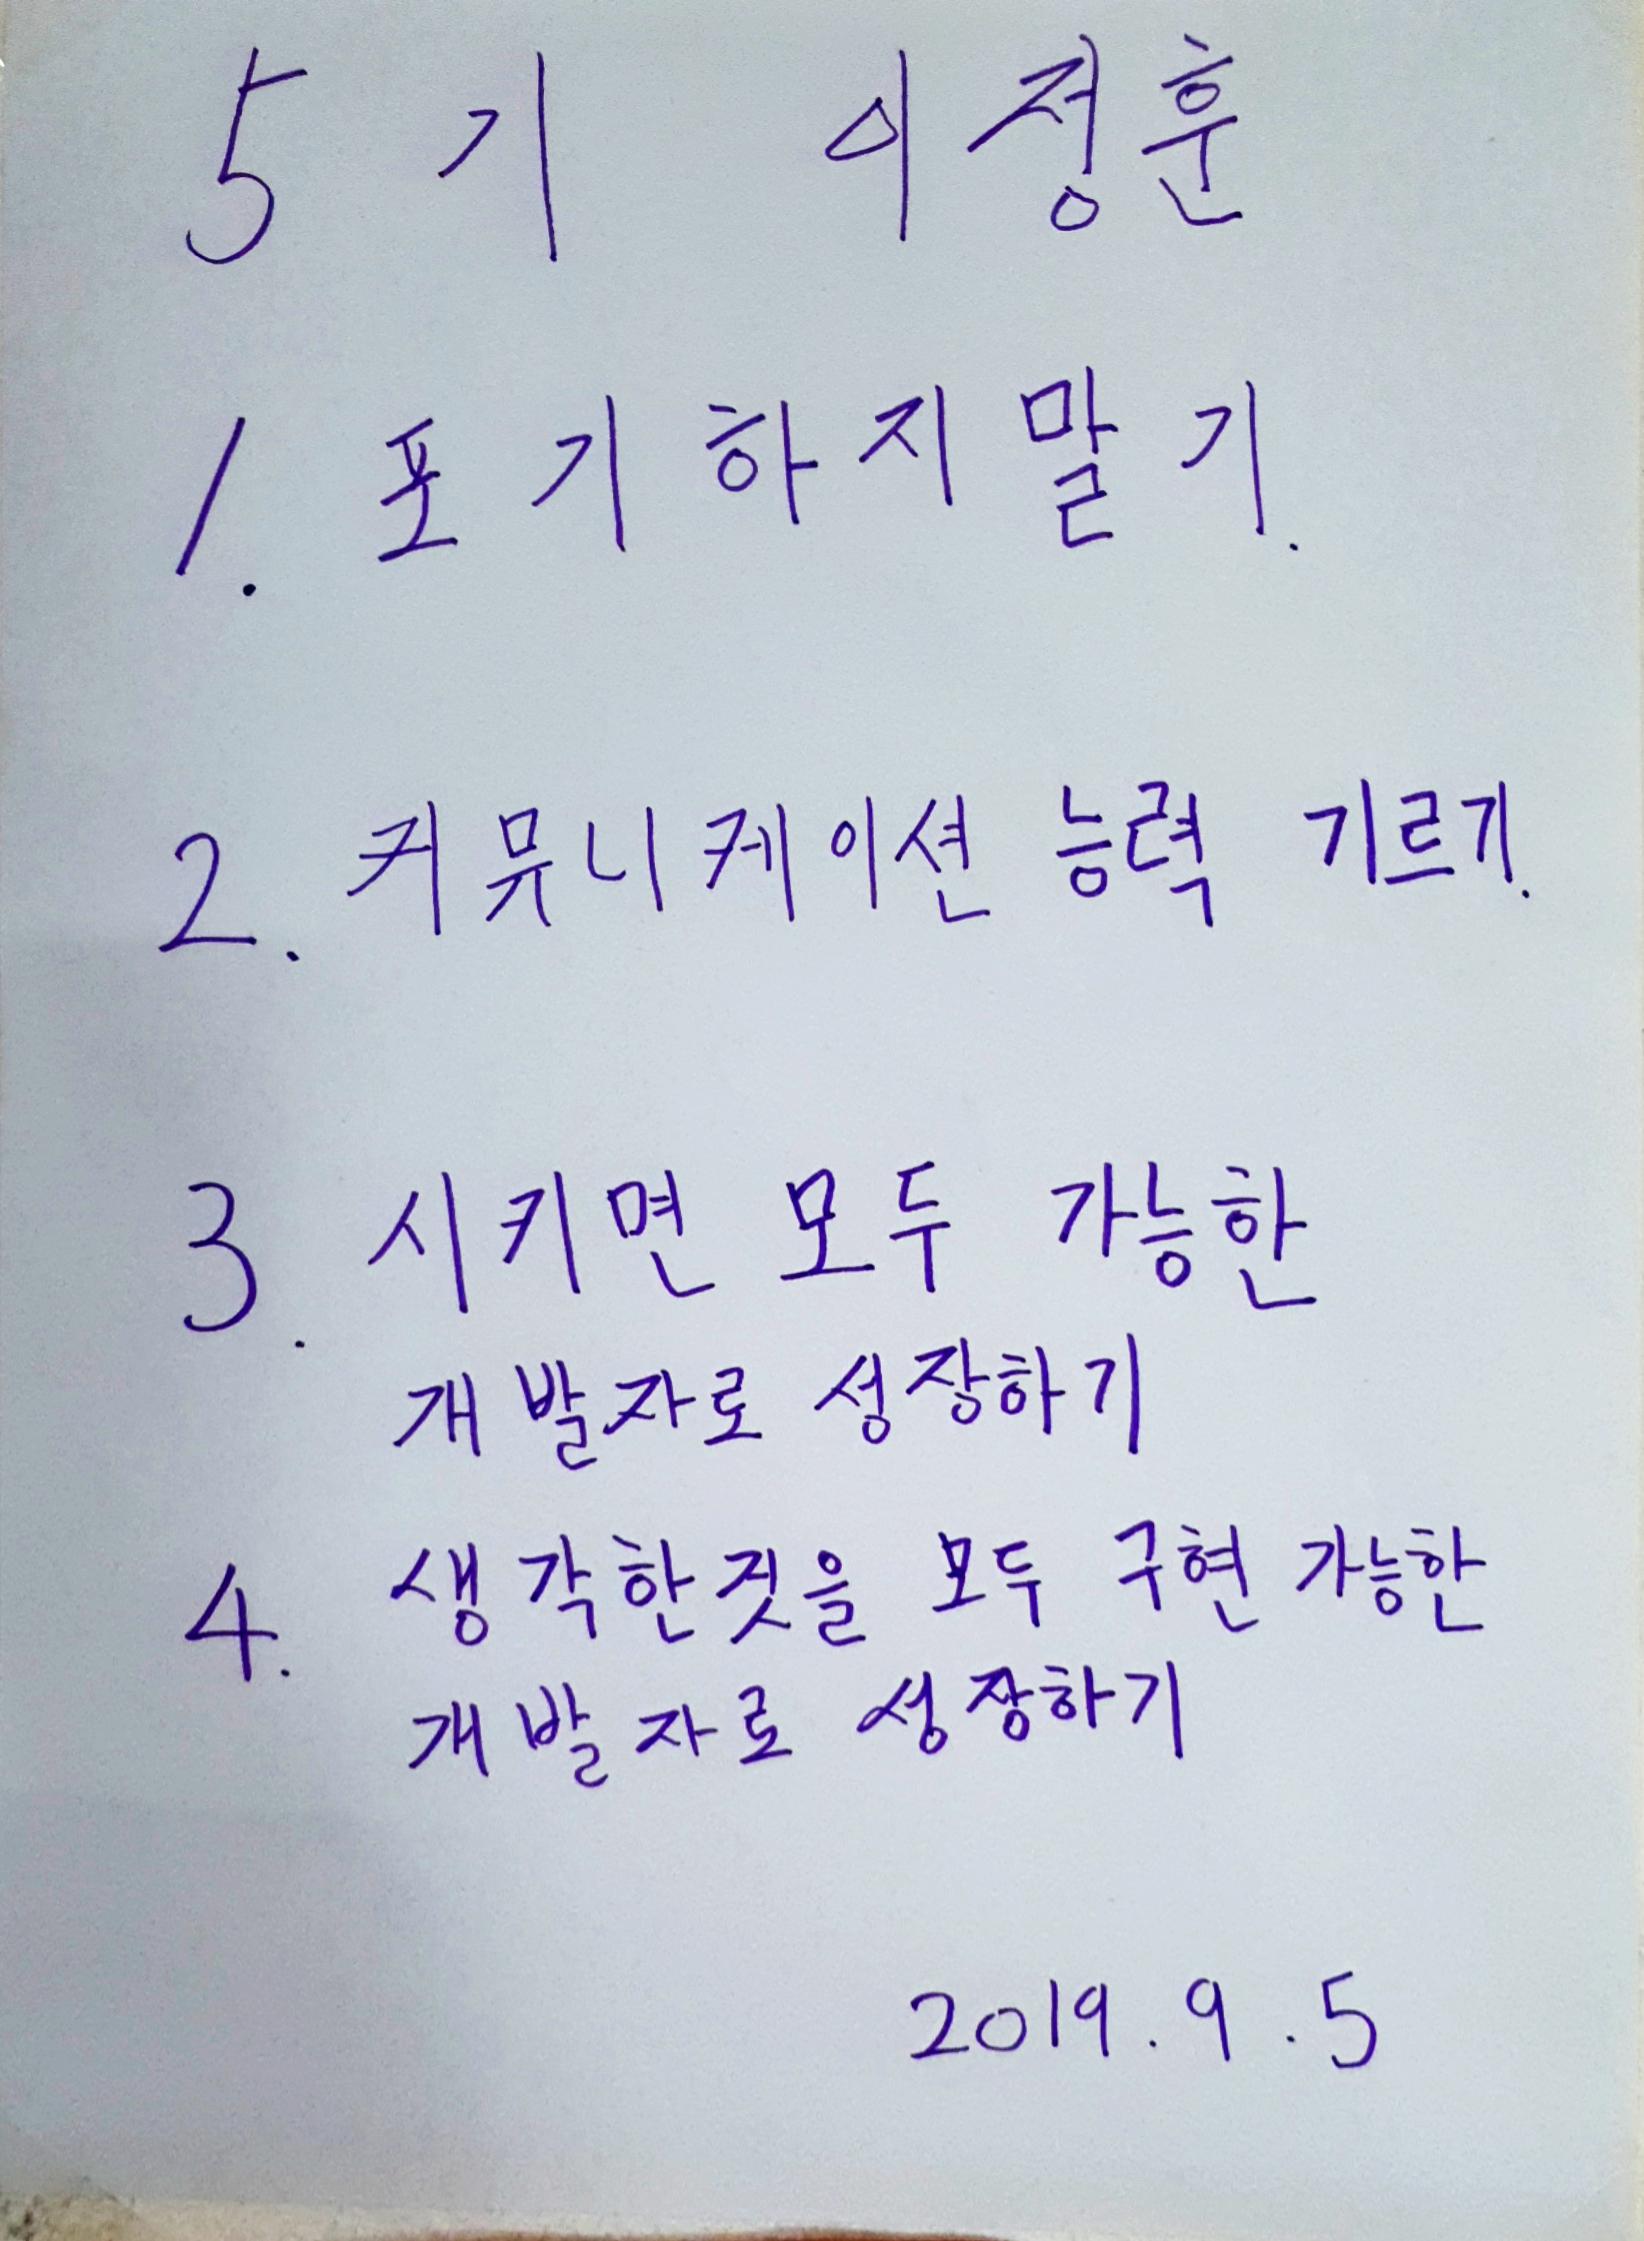 5기 이정훈
1. 포기하지말기.
2. 커뮤니케이션 능력 기르기.
3. 시키면 모두 가능한
개발자로 성장하기
4. 생각한것을 모두 구현 가능한
개발자로 성장하기
2019.9.5